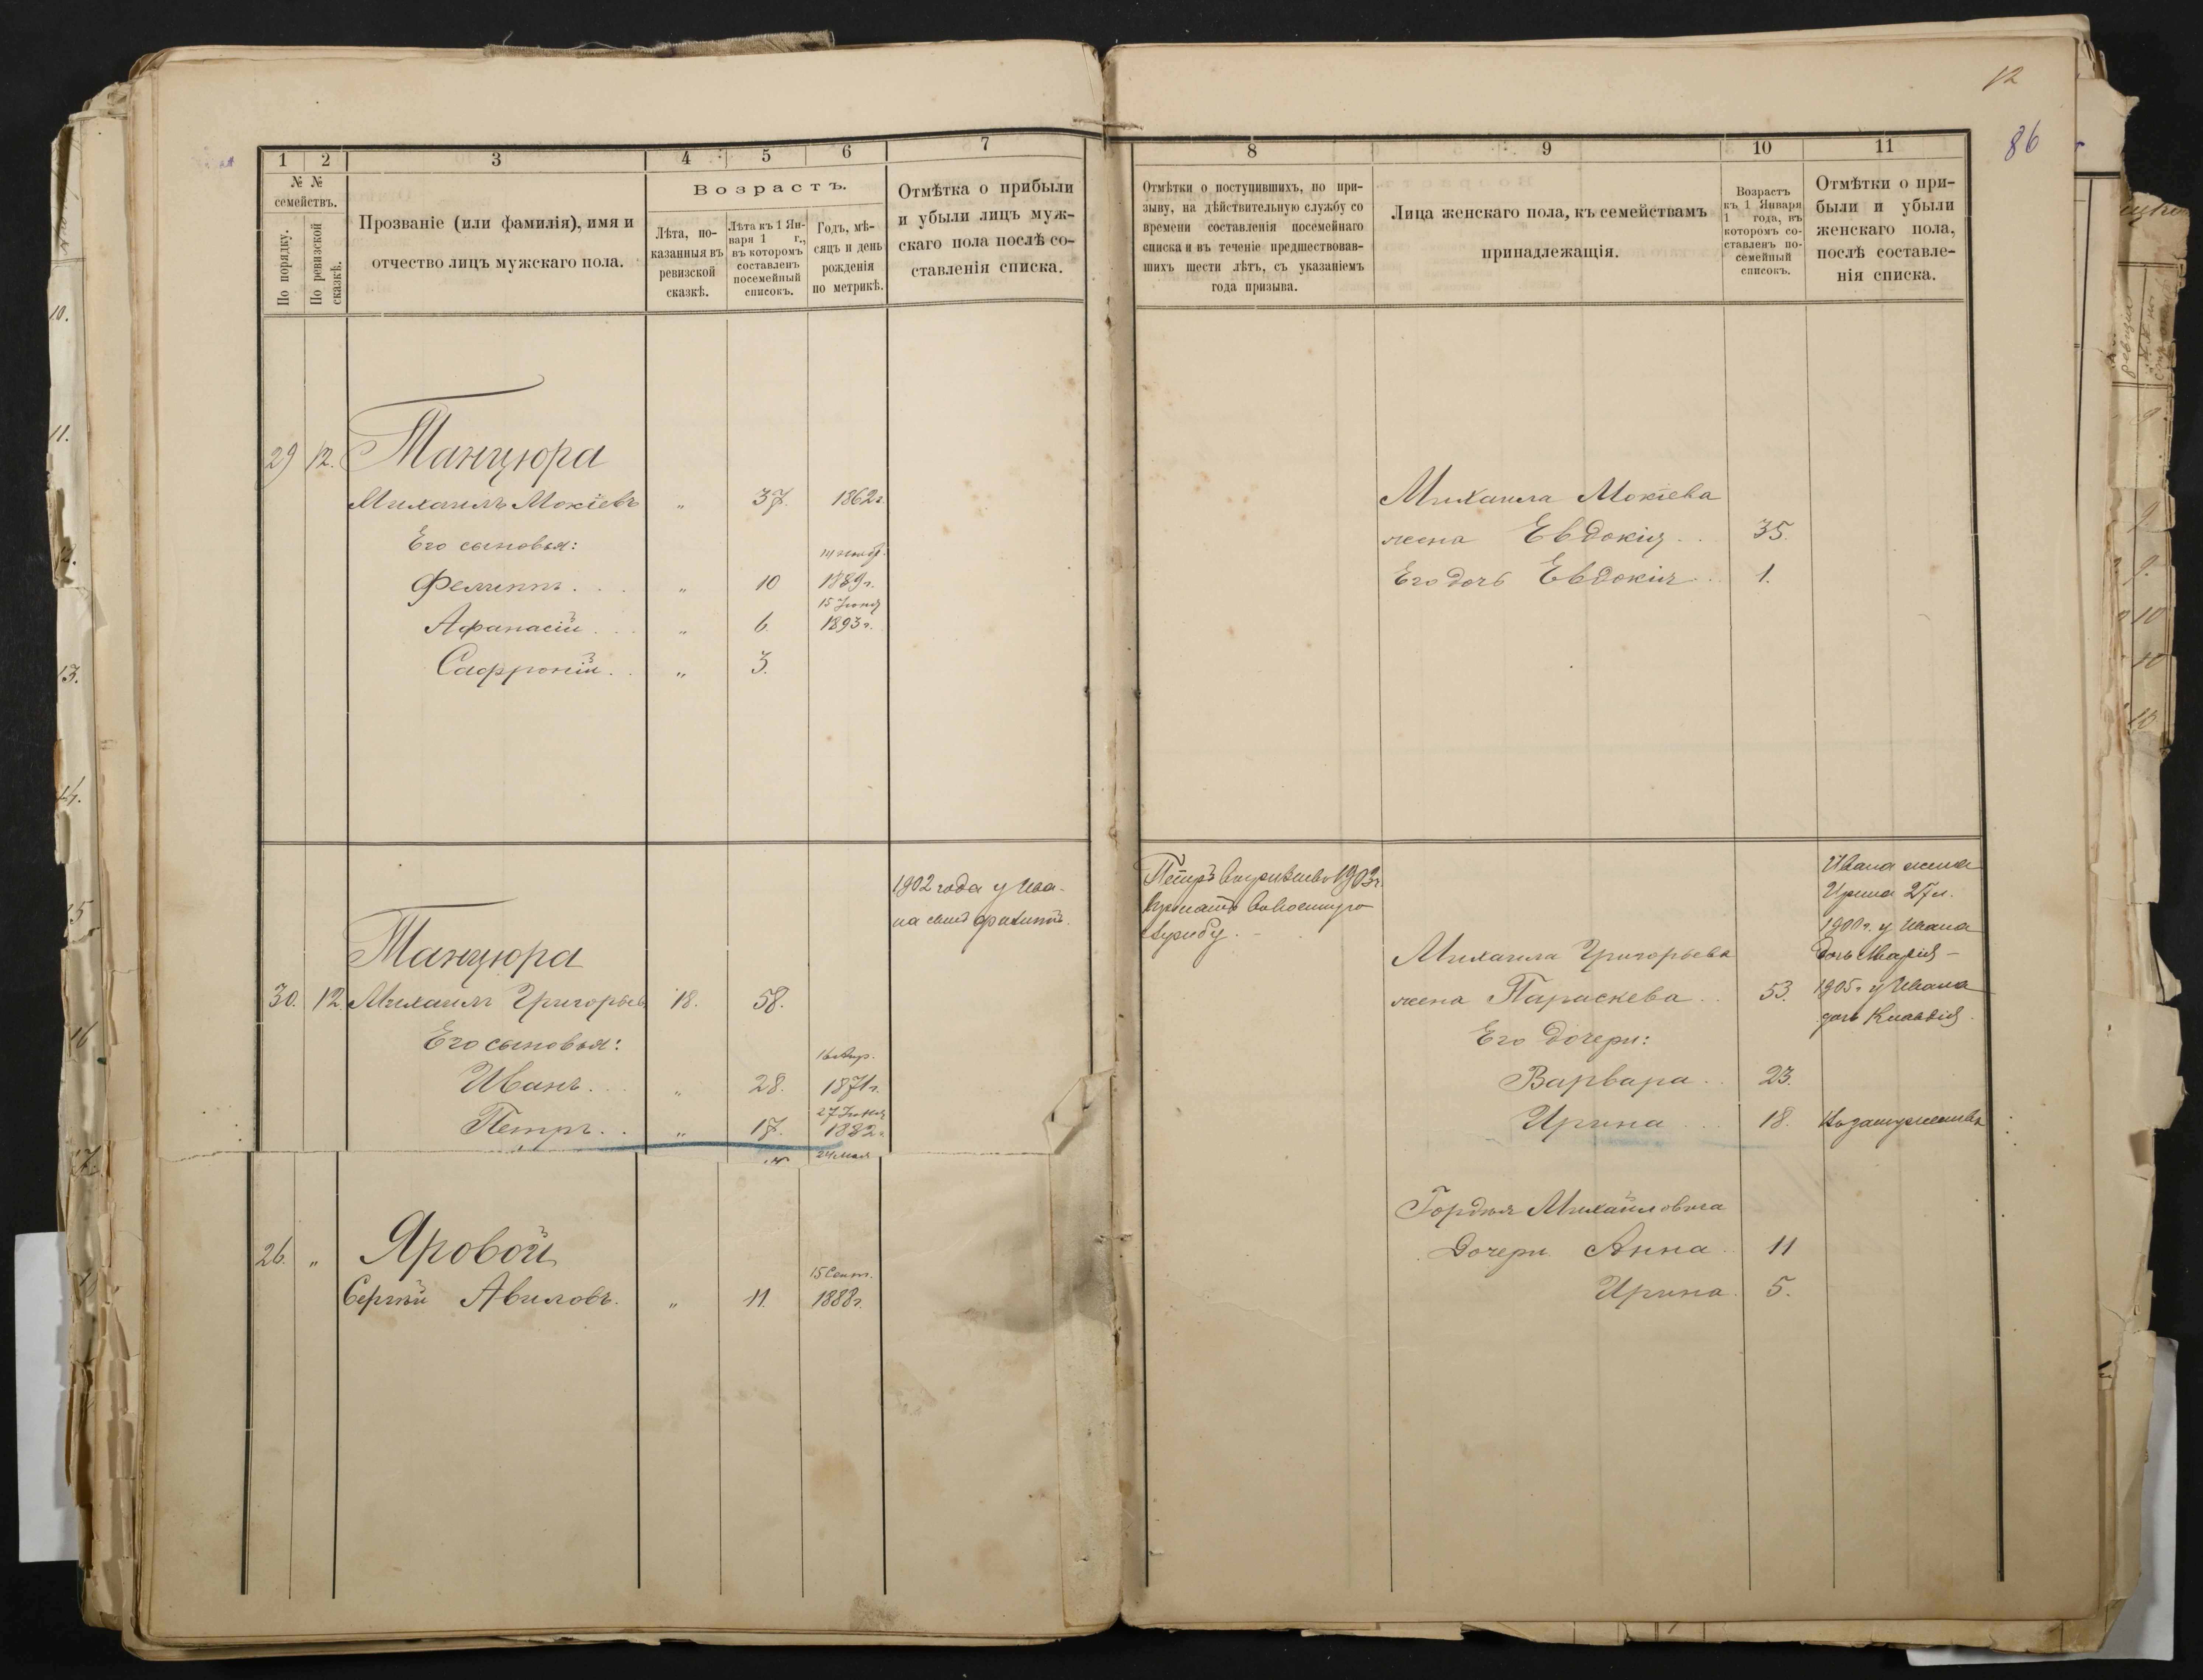 12
86
1 2 3 4 5 6 7
№ №
семействъ.
По порядку.
По ревизской
сказкѣ.
Прозваніе (или фамилія), имя и
отчество лицъ мужскаго пола.
Возрастъ.
Лѣта, по-
казанныя въ
ревизской
сказкѣ.
Лѣта къ 1 Ян-
варя 1 г.,
въ которомъ
составленъ
посемейный
списокъ.
Годъ, мѣ-
сяцъ и день
рожденія
по метрикѣ.
Отмѣтка о прибыли
и убыли лицъ муж-
скаго пола послѣ со-
ставленія списка.
29 12. Манцюра
Михаилъ Мокіевъ " 37. 1862г.
Его сыновья:
Филиппъ . . . " 10 1889г.
15 Іюня
Афанасій . . . " 6. 1893г.
Сафроній . . " 3.
1902 года у Ива-
на сынъ
Манцюра
30. 12. Михаилъ Григорьев 18. 58.
Его сыновья:
16 Апр.
Иванъ . . . " 28. 1871г.
27 Іюня
Петръ . . " 17. 1882г.
24 мая
26. " Яровой
15 Сент.
Сергѣй Авиловъ. " 11. 1888г.
8 9 10 11
Отмѣтки о поступившихъ, по при-
зыву, на дѣйствительную службу со
времени составленія посемейнаго
списка и въ теченіе предшествовав-
шихъ шести лѣтъ, съ указаніемъ
года призыва.
Лица женскаго пола, къ семействамъ
принадлежащія.
Возрастъ
къ 1 Января
1 года, въ
которомъ со-
ставленъ по-
семейный
списокъ.
Отмѣтки о при-
были и убыли
женскаго пола,
послѣ составле-
нія списка.
Михаила Мокіева
жена Евдокія . . 35.
Его дочь Евдокія . . 1.
Петръ 1903г.
Михаила Григорьева
жена Параскева . . 53.
Его дочери:
Варвара . . 23.
Ирина . . . 18. Въ замужествѣ
Ивана жена
Ирина 27 л.
1900г. у Ивана
дочь Марія –
1905г. у Ивана
дочь Клавдія.
Гордѣя Михайловича
Дочери Анна . 11
Ирина. 5.